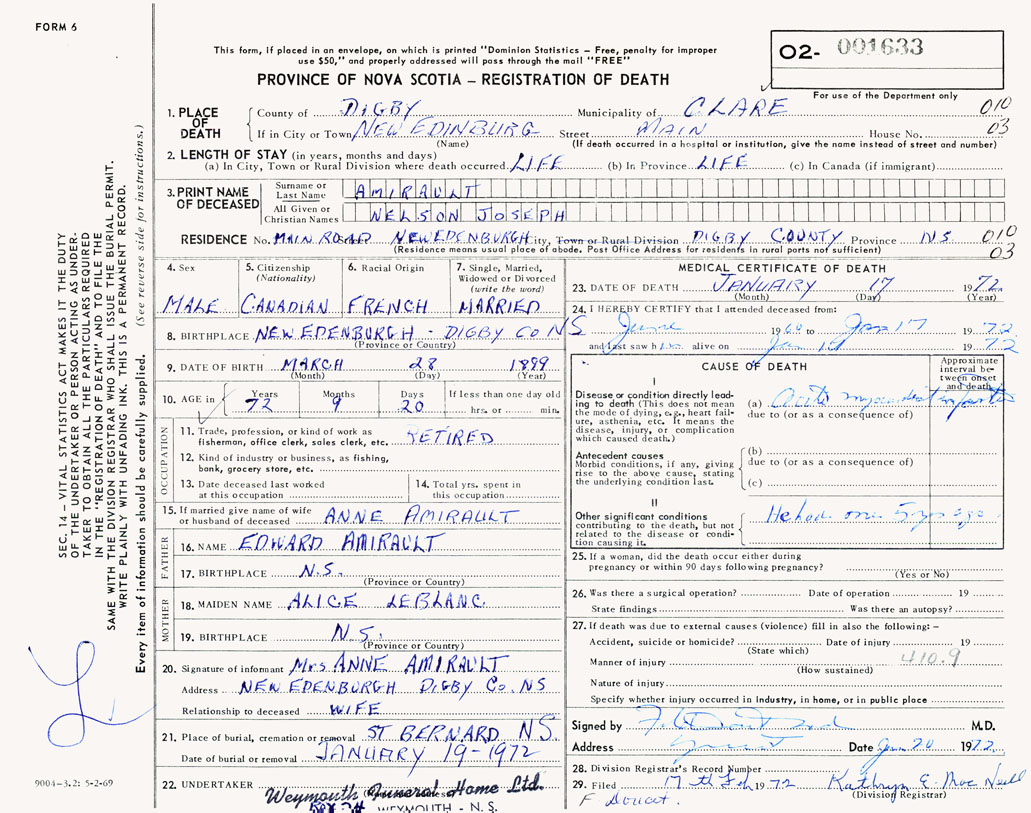 FORM 6
This form, if placed in an envelope, on which is printed "Dominion Statistics – Free, penalty for improper
use $50," and properly addressed will pass through the mail "FREE"
PROVINCE OF NOVA SCOTIA – REGISTRATION OF DEATH
02- 001633
For use of the Department only
1. PLACE OF DEATH
County of DIGBY Municipality of CLARE 010
If in City or Town NEW EDINBURG Street MAIN House No. 03
(Name) (If death occurred in a hospital or institution, give the name instead of street and number)
2. LENGTH OF STAY (in years, months and days)
(a) In City, Town or Rural Division where death occurred LIFE (b) In Province LIFE (c) In Canada (if immigrant)
3. PRINT NAME OF DECEASED
Surname or Last Name AMIRAULT
All Given or Christian Names NELSON JOSEPH
RESIDENCE No. MAIN ROAD Street NEW EDENBURGH City, Town or Rural Division DIGBY COUNTY Province NS 010
(Residence means usual place of abode. Post Office Address for residents in rural parts not sufficient) 03
4. Sex MALE
5. Citizenship (Nationality) CANADIAN
6. Racial Origin FRENCH
7. Single, Married, Widowed or Divorced (write the word) MARRIED
8. BIRTHPLACE NEW EDENBURGH - DIGBY CO NS
(Province or Country)
9. DATE OF BIRTH MARCH 28 1899
(Month) (Day) (Year)
10. AGE in Years 72 Months 9 Days 20 If less than one day old hrs. or min.
OCCUPATION
11. Trade, profession, or kind of work as fisherman, office clerk, sales clerk, etc. RETIRED
12. Kind of industry or business, as fishing, bank, grocery store, etc.
13. Date deceased last worked at this occupation
14. Total yrs. spent in this occupation
15. If married give name of wife or husband of deceased ANNE AMIRAULT
FATHER
16. NAME EDWARD AMIRAULT
17. BIRTHPLACE N.S.
(Province or Country)
MOTHER
18. MAIDEN NAME ALICE LEBLANC
19. BIRTHPLACE N.S.
(Province or Country)
20. Signature of informant Mrs ANNE AMIRAULT
Address NEW EDENBURGH DIGBY CO. NS
Relationship to deceased WIFE
21. Place of burial, cremation or removal ST BERNARD N.S.
Date of burial or removal JANUARY 19-1972
22. UNDERTAKER Weymouth Funeral Home Ltd.
WEYMOUTH - N.S.
MEDICAL CERTIFICATE OF DEATH
23. DATE OF DEATH JANUARY 17 1972
(Month) (Day) (Year)
24. I HEREBY CERTIFY that I attended deceased from:
June 1960 to Jan 17 1972
and last saw him alive on Jan 1972
CAUSE OF DEATH
Approximate interval between onset and death
I
Disease or condition directly leading to death (This does not mean the mode of dying, e.g., heart failure, asthenia, etc. It means the disease, injury, or complication which caused death.)
(a) Acute myocardial infarction
due to (or as a consequence of)
Antecedent causes
Morbid conditions, if any, giving rise to the above cause, stating the underlying condition last.
(b)
due to (or as a consequence of)
(c)
II
Other significant conditions contributing to the death, but not related to the disease or condition causing it.
He had one 5 yrs ago
25. If a woman, did the death occur either during pregnancy or within 90 days following pregnancy?
(Yes or No)
26. Was there a surgical operation? Date of operation 19
State findings Was there an autopsy?
27. If death was due to external causes (violence) fill in also the following: –
Accident, suicide or homicide? Date of injury 19
(State which)
Manner of injury 410.9
(How sustained)
Nature of injury
Specify whether injury occurred in Industry, in home, or in public place
Signed by M.D.
Address Date Jan 20 1972
28. Division Registrar's Record Number
29. Filed 17th Feb 1972 Kathryn E. Mac Neill
(Division Registrar)
F Doucet.
SEC. 14 – VITAL STATISTICS ACT MAKES IT THE DUTY
OF THE UNDERTAKER OR PERSON ACTING AS UNDER-
TAKER TO OBTAIN ALL THE PARTICULARS REQUIRED
IN THE "REGISTRATION OF DEATH" AND TO FILE THE
SAME WITH THE DIVISION REGISTRAR WHO SHALL ISSUE THE BURIAL PERMIT.
WRITE PLAINLY WITH UNFADING INK. THIS IS A PERMANENT RECORD.
Every item of information should be carefully supplied. (See reverse side for instructions.)
9004-3.2: 5-2-69